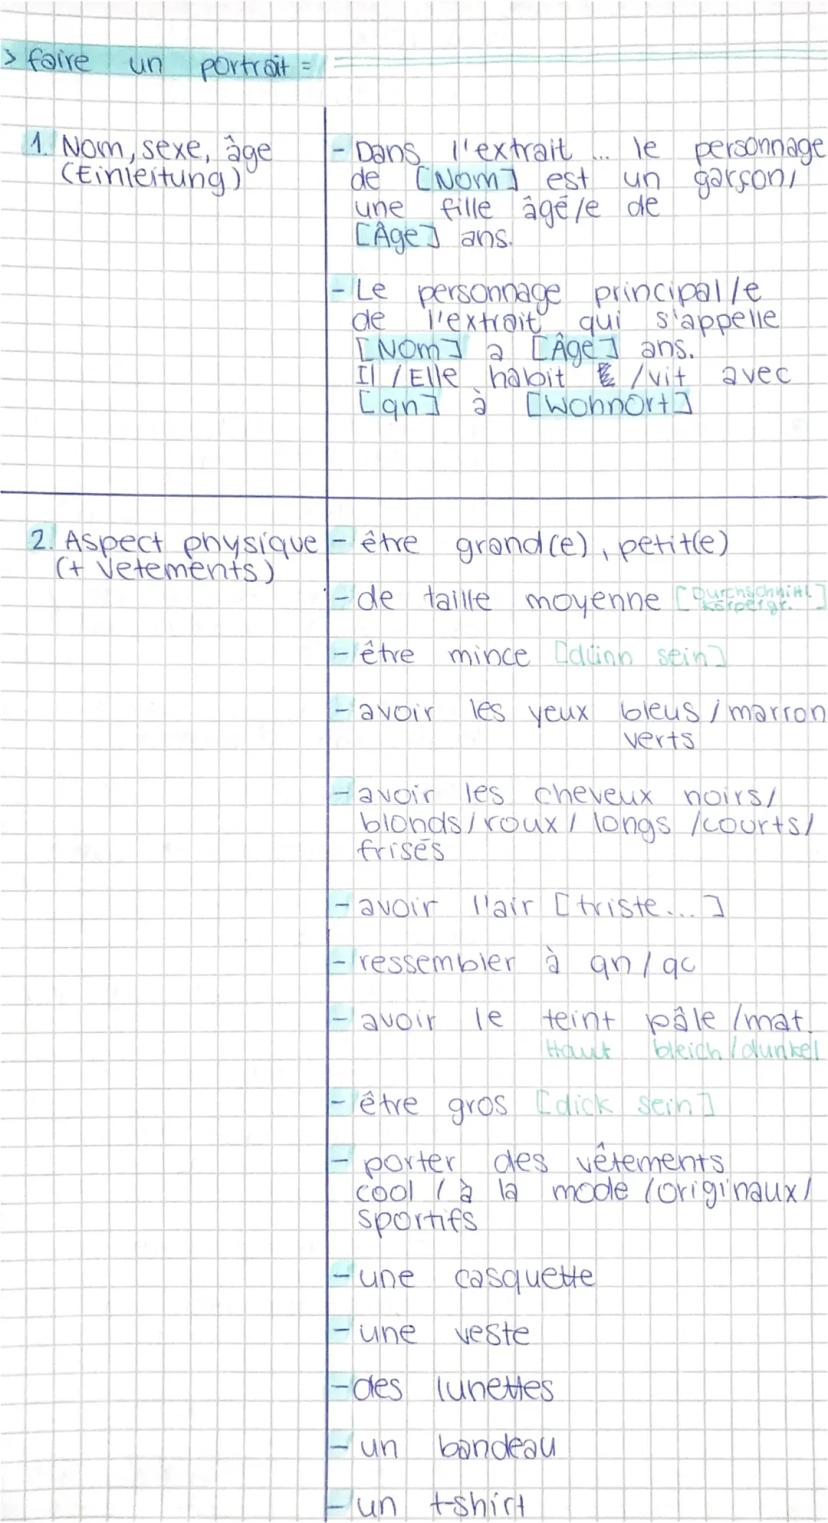 > faire un portrait =
1. Nom, sexe, âge
(Einleitung)
- Dans l'extrait ... le personnage
de [Nom] est un garçon/
une fille âgé/e de
[Âge] ans.
- Le personnage principal/e
de l'extrait qui s'appelle
[Nom] a [Âge] ans.
Il/Elle habit /vit avec
[qn] à [Wohnort]
2. Aspect physique
(+ vetements)
- être grand(e), petit(e)
- de taille moyenne [Durchschnittl.
körpergr.]
- être mince [dünn sein]
- avoir les yeux bleus/marron
verts
- avoir les cheveux noirs/
blonds/roux/longs/courts/
frisés
- avoir l'air [triste...]
- ressembler à qn/qc
- avoir le teint pâle/mat.
Haut bleich/dunkel
- être gros [dick sein]
- porter des vêtements
cool/à la mode/originaux/
sportifs
- une casquette
- une veste
- des lunettes
- un bandeau
- un t-shirt